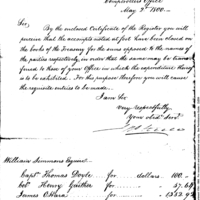 Comptrollers Office
May 3d 1800.
Sir,
By the enclosed Certificate of the Register you will
perceive that the accounts listed at foot have been placed on
the books of the Treasury for the sums opposite to the names of
the parties respectively, in order that the same may be trans=
ferred to those of your Office in which the expenditure
to be exhibited. For this purpose therefore you will cause
the requisite entries to be made.
I am Sir
very respectfully
Your obed. Servt.
William Simmons Esquire
Capt Thomas Doyle for dollars 100.
Henry Gaither for
James O'Hara for